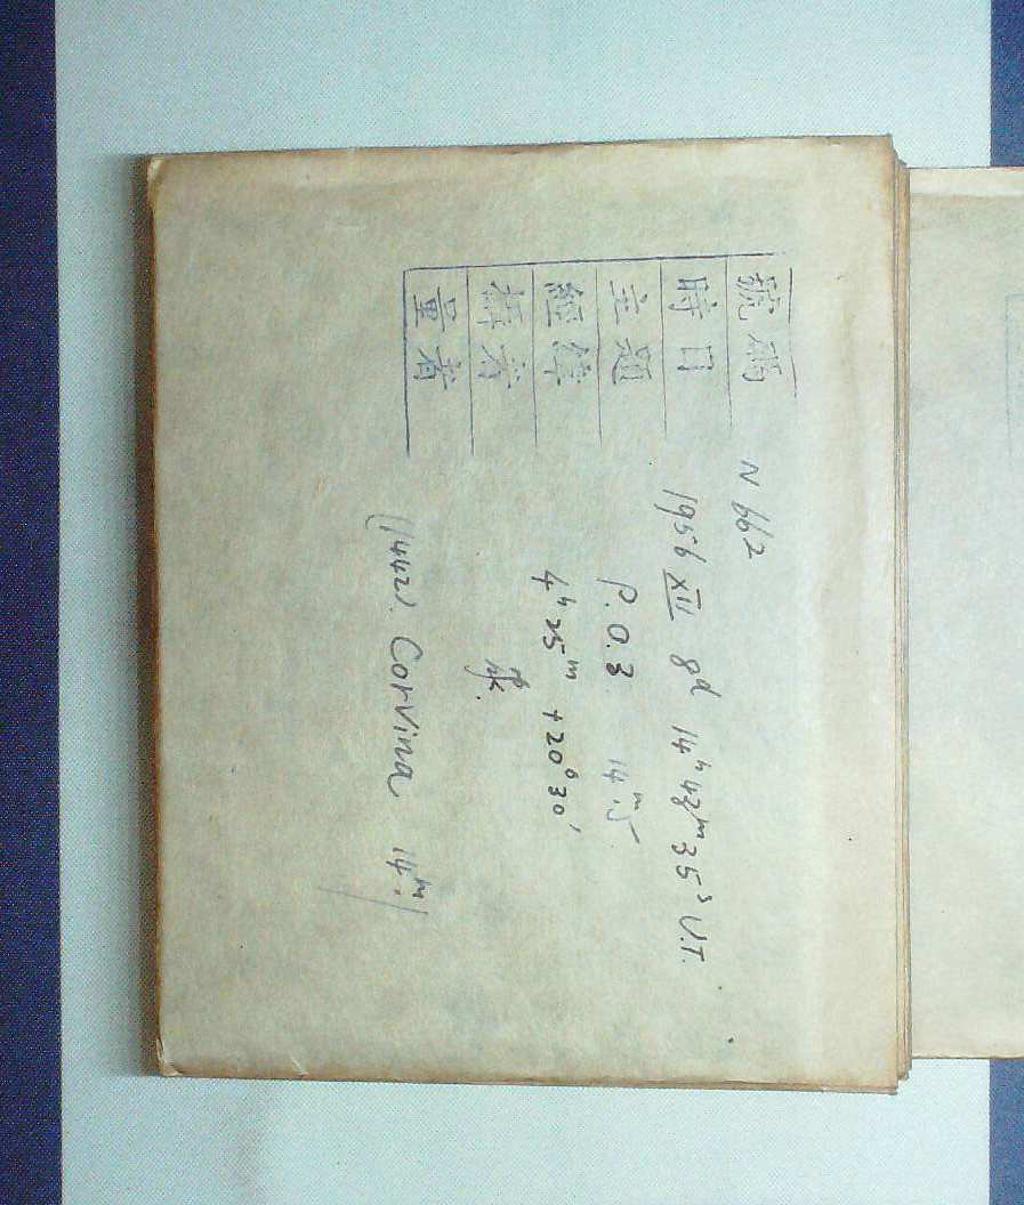 號碼 N 662
時日 1956 XII 8d 14h 43m 35s U.T.
主題 P.O.3. 14m.5
經緯 4h 25m +20° 30'
攝者 張.
量者
(1442). Corvina 14m.)